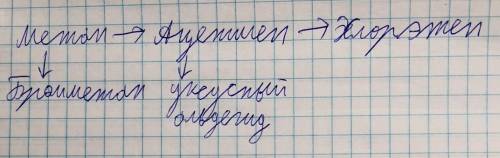 Метан → Ацетилен → Хлорэтен
↓ ↓
Бромметан уксусный
альдегид